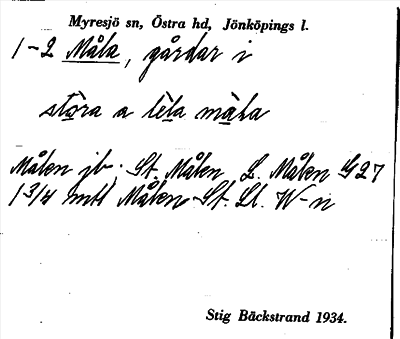 Myresjö sn, Östra hd, Jönköpings l.
1-2 Måla, gårdar i
stòra a lèla màla
Målen jb; St. Målen L. Målen G27
1 3/4 mtl Målen St. Ll. W-n
Stig Bäckstrand 1934.